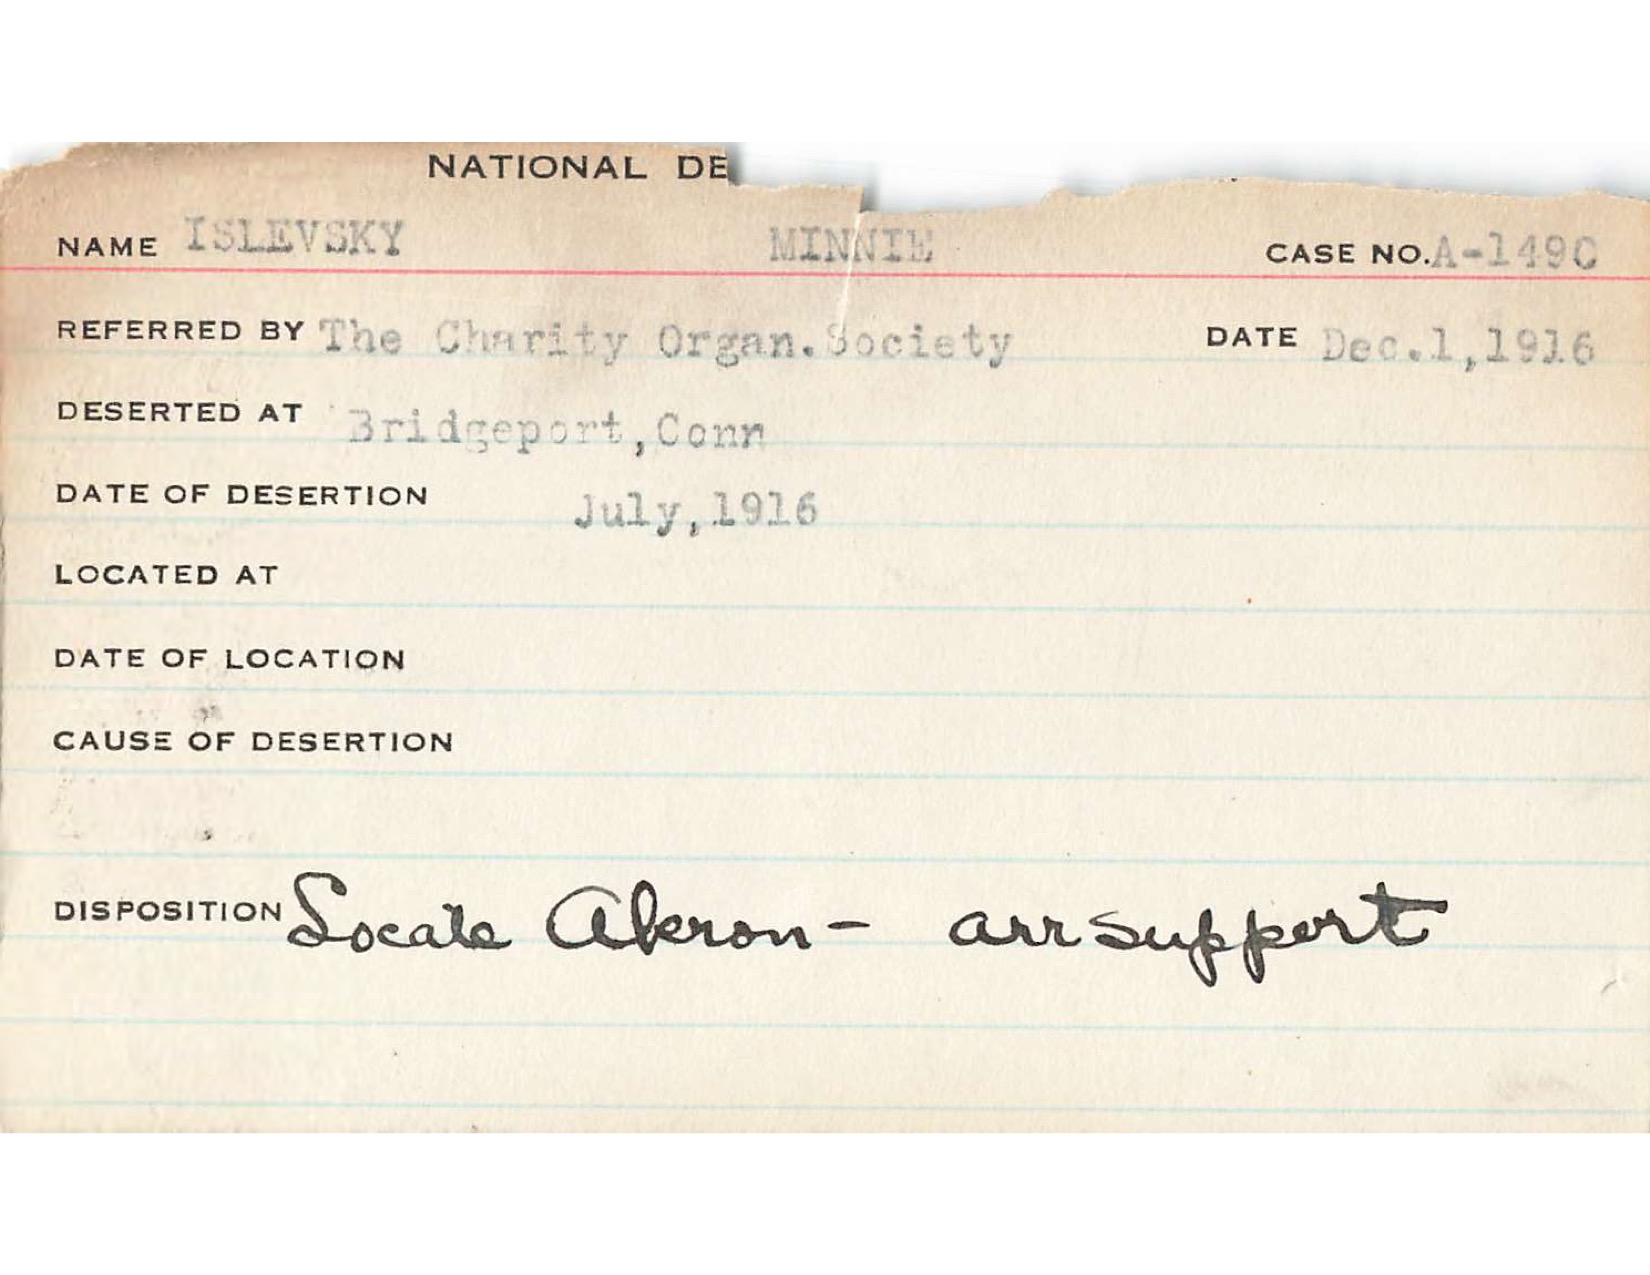 NATIONAL DE
NAME ISLEVSKY MINNIE CASE NO. A-1490
REFERRED BY The Charity Organ. Society DATE Dec.1,1916
DESERTED AT Bridgeport,Conn
DATE OF DESERTION July,1916
LOCATED AT
DATE OF LOCATION
CAUSE OF DESERTION
DISPOSITION Locate Akron - arr support